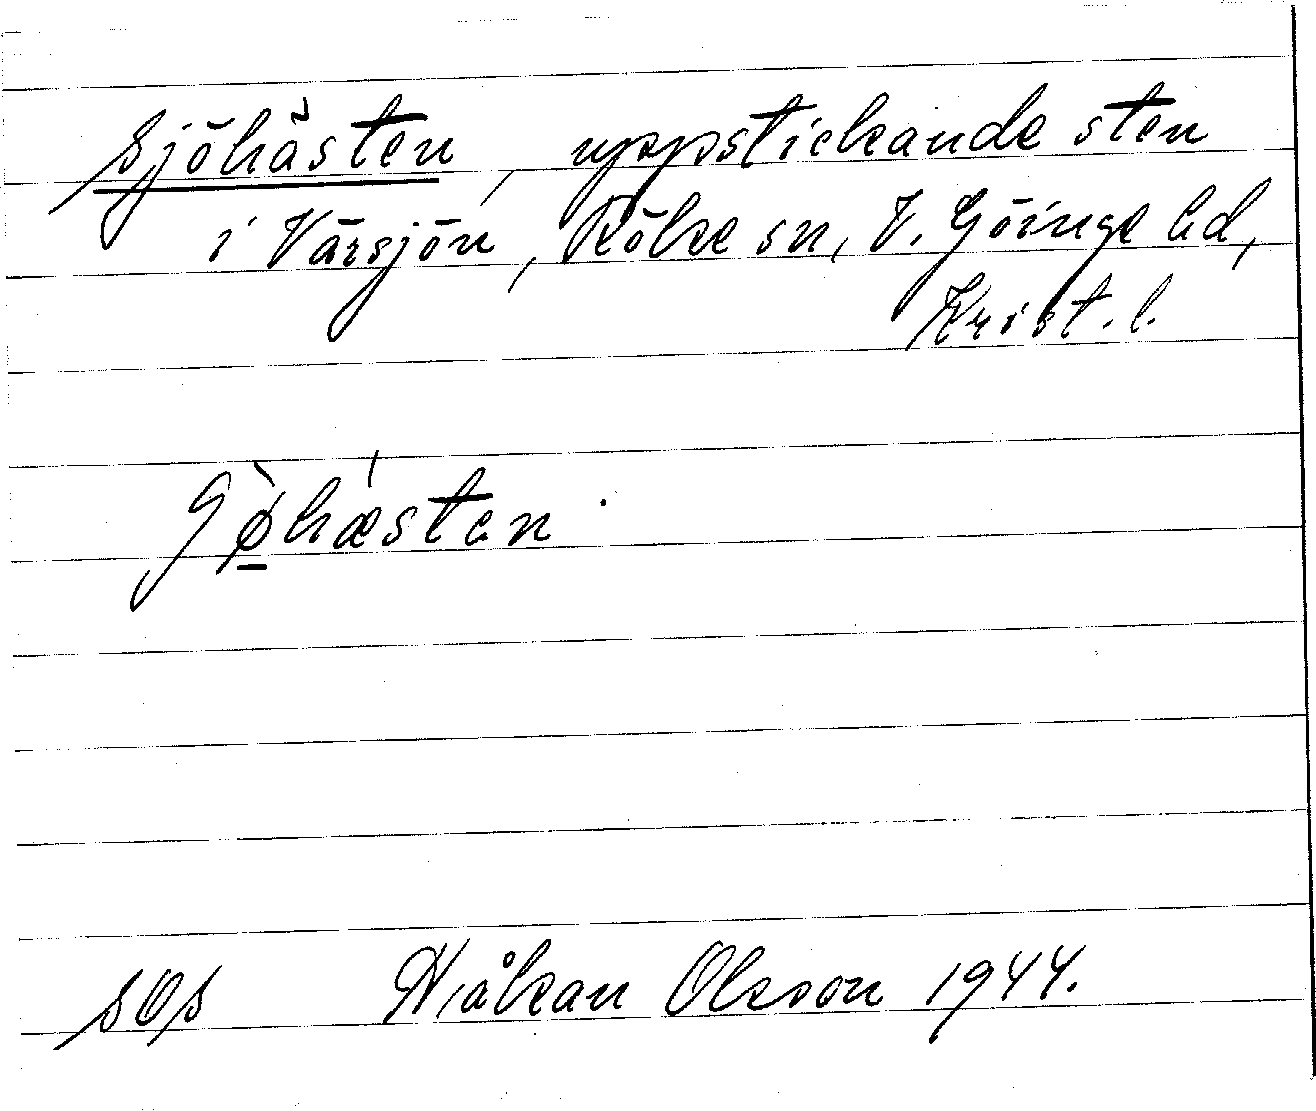 Sjöhästen, uppstickande sten
i Vårsjön, Röke sn, V. Göinge hd,
Krist. l.
Jø̱̀hǽsten.
SOS Håkan Olsson 1944.